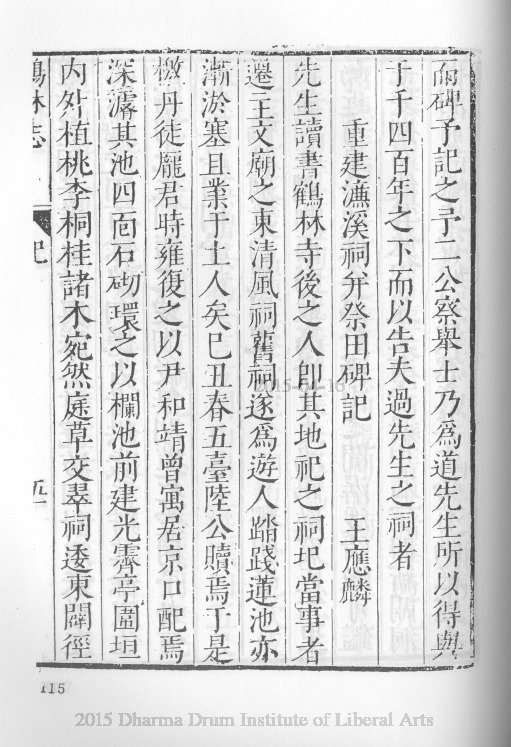 而碑予記之予二公察舉士乃為道先生所以得與
于千四百年之下而以告夫過先生之祠者
重建濂溪祠并祭田碑記 王應麟
先生讀書鶴林寺後之人卽其地祀之祠圮當事者
遷王文廟之東清風祠舊祠遂為遊人踏踐蓮池亦
漸淤塞且業于土人矣巳丑春五臺陸公贖焉于是
檄丹徒龎君時雍復之以尹和靖曾寓居京口配焉
深濬其池四面石砌環之以欄池前建光霽亭圍垣
內外植桃李桐桂諸木宛然庭草交翠祠逶東闢徑
鶴林志 記 五
115
2015-04-16
2015 Dharma Drum Institute of Liberal Arts